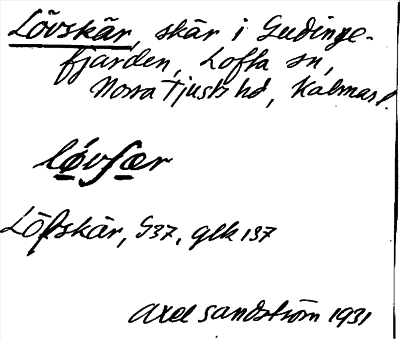 Lövskär, skär i Gudinge-
fjärden, Lofta sn,
Norra Tjusts hd, Kalmar l.
lǿvʃær
Löfskär, S37, gek 137
Axel Sandström 1931